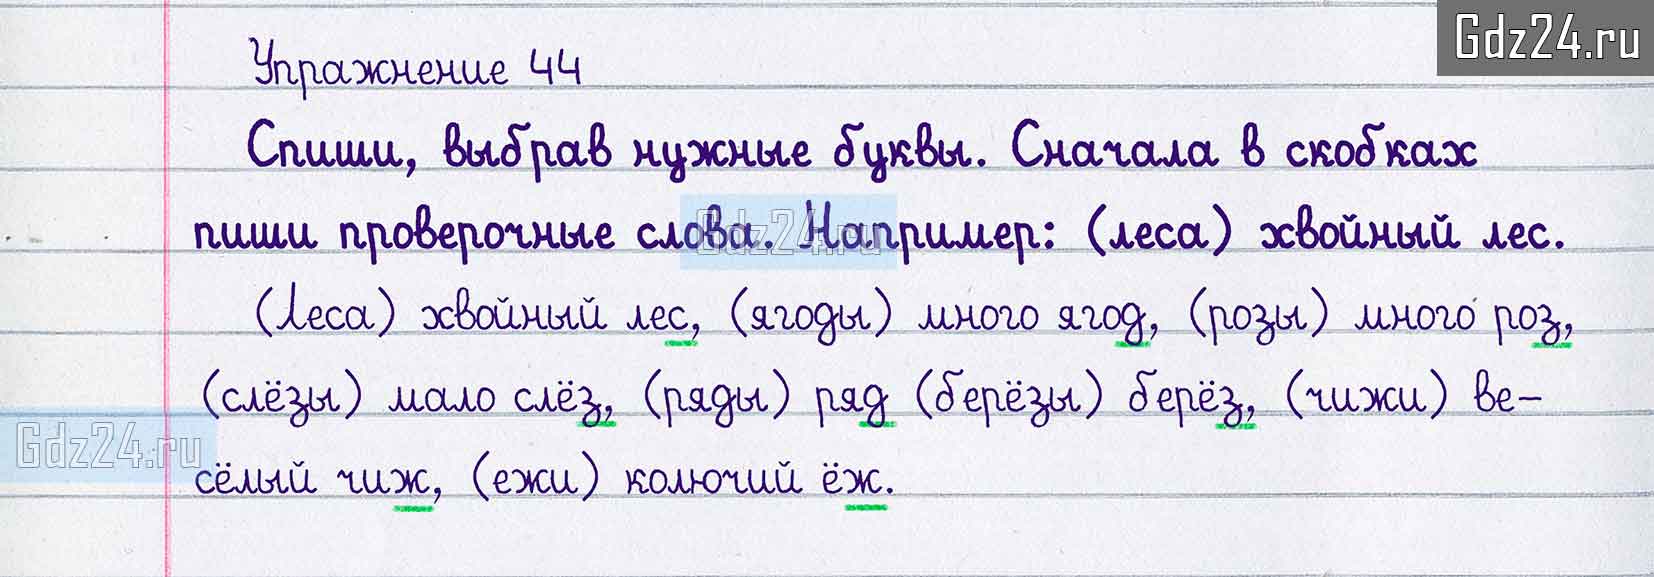 Gdz24.ru
Упражнение 44
Спиши, выбрав нужные буквы. Сначала в скобках
пиши проверочные слова. Например: (леса) хвойный лес.
Gdz24.ru
(Леса) хвойный лес, (ягоды) много ягод, (розы) много роз,
(слёзы) мало слёз, (ряды) ряд (берёзы) берёз, (чижи) ве-
Gdz24.ru
сёлый чиж, (ежи) колючий ёж.